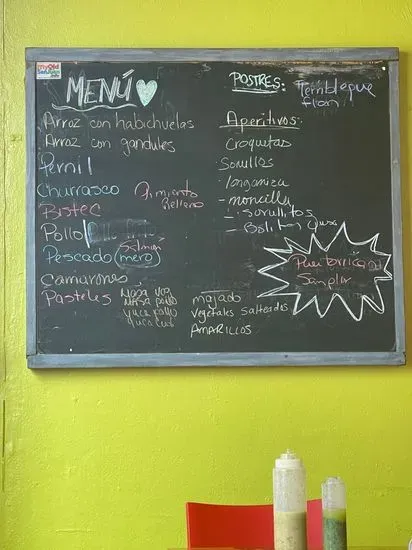 MyOld
SanJuan
MENÚ
Arroz con habichuelas
Arroz con gandules
Pernil
Churrasco
Pimiento
Relleno
Bistec
Pollo
Salmón
Pescado (mero)
Camarones
Pasteles
Masa pollo
yuca pollo
majado
vegetales salteados
AMARILLOS
POSTRES:
Tembleque
flan
Aperitivos:
Croquetas
Sorullos
longaniza
- morcilla
- sorullitos
- Bolitas Queso
Puertorrican
Sampler